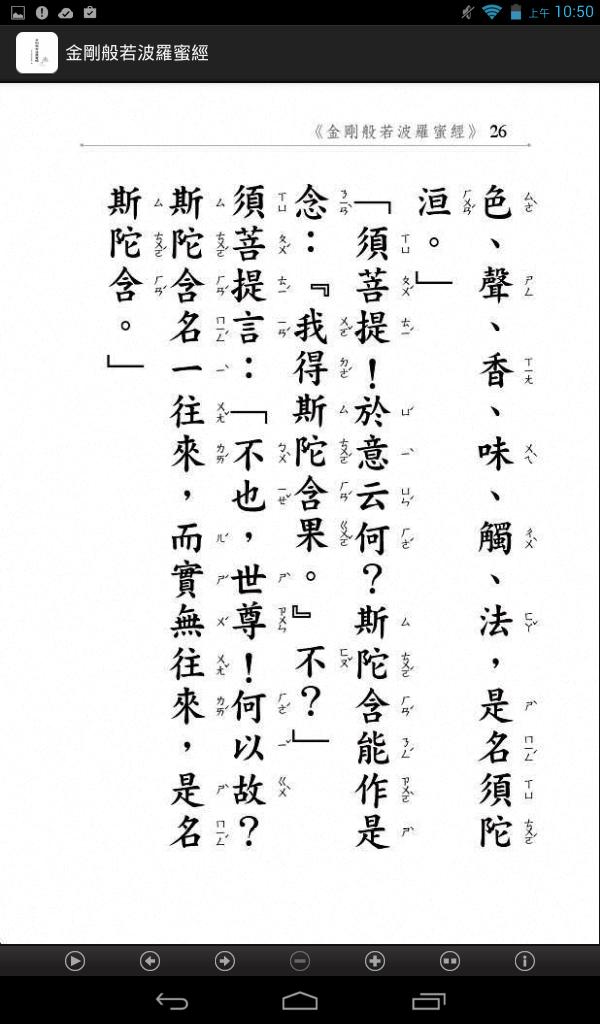 上午 10:50
金剛般若波羅蜜經
《金剛般若波羅蜜經》 26
色、聲、香、味、觸、法，是名須陀
洹。」
「須菩提！於意云何？斯陀含能作是
念：『我得斯陀含果。』不？」
須菩提言：「不也，世尊！何以故？
斯陀含名一往來，而實無往來，是名
斯陀含。」